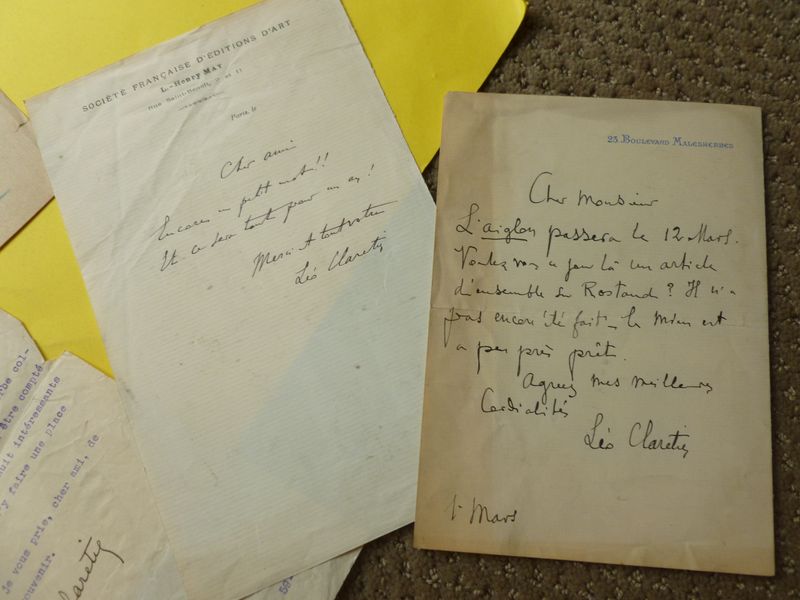 SOCIÉTÉ FRANÇAISE D'ÉDITIONS D'ART
L.-Henry MAY
Rue Saint-Benoît, 9 et 11
Paris, le
Cher ami
Encore un petit mot!!
Et ce sera tout pour un an!
Merci et tout votre
Léo Claretie
25 Boulevard Malesherbes
Cher Monsieur
L'aiglon passera le 12 Mars.
Voulez vous ce jour là un article
d'ensemble sur Rostand? Il n'a
pas encore été fait, le mien est
a peu près prêt.
Agréez mes meilleures
Cordialités
Léo Claretie
1r Mars
rbe col-
être compté
nuit intéressants
y faire une place
je vous prie, cher ami, de
souvenir.
Claretie